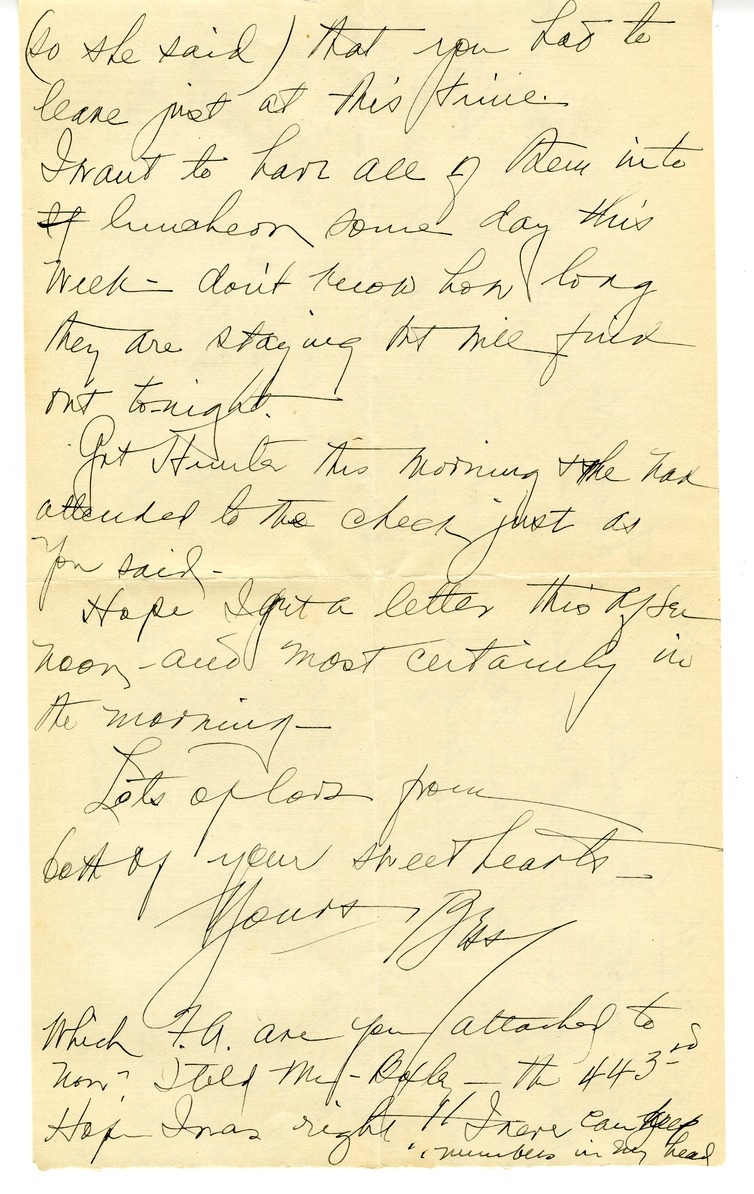 (so she said) that you had to
leave just at this time.
I want to have all of them in to
luncheon some day this
week - don't know how long
they are staying but will find
out tonight.
Got Hunter this morning & he had
attended to the check just as
you said -
Hope I get a letter this after
noon - and most certainly in
the morning -
Lots of love from
both of your sweethearts -
Yours Bess
Which F.A. are you attached to
now? I told Mr - Boxley - the 443rd
Hope I was right !! I never can keep
numbers in my head